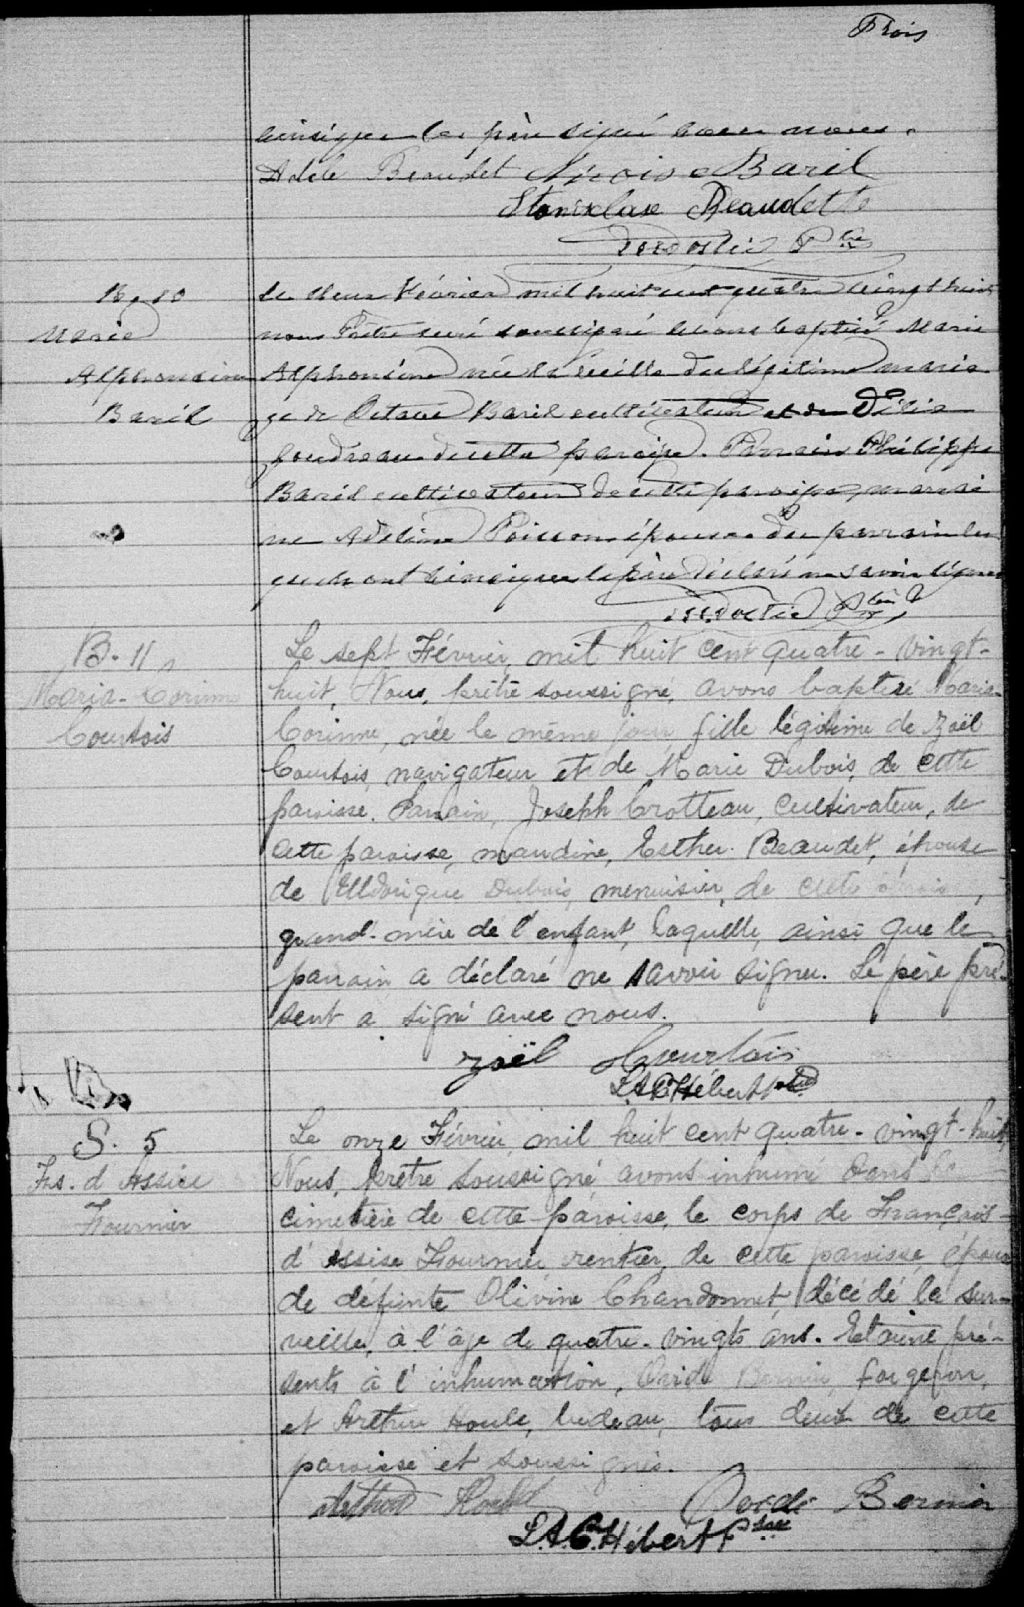 Trois
ainsi que le père signé avec nous.
Adèle Beaudet Baril
Stanislase Beaudette
Ptre
B. 10
Marie
Alphonsine
Baril
Le deux Février mil huit cent quatre vingt huit
nous Prêtre curé soussigné avons baptisé Marie
Alphonsine née la veille du légitime maria
ge de Octave Baril cultivateur et de Délia
Goudreau de cette paroisse. Parrain Philippe
Baril cultivateur de cette paroisse, marrai
ne Adeline Poisson épouse du parrain les
quels ont ainsi que le père déclaré ne savoir signer
Ptre
B. 11
Marie-Corinne
Courtois
Le sept Février, mil huit cent quatre-vingt-
huit, Nous, prêtre soussigné, avons baptisé Marie-
Corinne, née le même jour, fille légitime de Zoël
Courtois, navigateur et de Marie Dubois, de cette
paroisse. Parrain, Joseph Crotteau, cultivateur, de
cette paroisse, marraine, Esther Beaudet, épouse
de Elldorique Dubois, menuisier, de cette paroisse,
grand-mère de l'enfant, laquelle, ainsi que le
parrain a déclaré ne savoir signer. Le père pré-
sent a signé avec nous.
Zoël Courtois
L.A.C. Hébert
S. 5
Frs. d'Assise
Fournier
Le onze Février, mil huit cent quatre-vingt-huit,
Nous, prêtre soussigné avons inhumé dans le
cimetière de cette paroisse, le corps de François-
d'Assise Fournier rentier, de cette paroisse, époux
de défunte Olivine Chandonnet, décédé la sur-
veille, à l'âge de quatre-vingts ans. Etaient pré-
sents à l'inhumation, Ovide Bernier, forgeron,
et Arthur Houle, bedeau, tous deux de cette
paroisse et soussignés.
Arthur Houle Ovide Bernier
L.A.C. Hébert Ptre